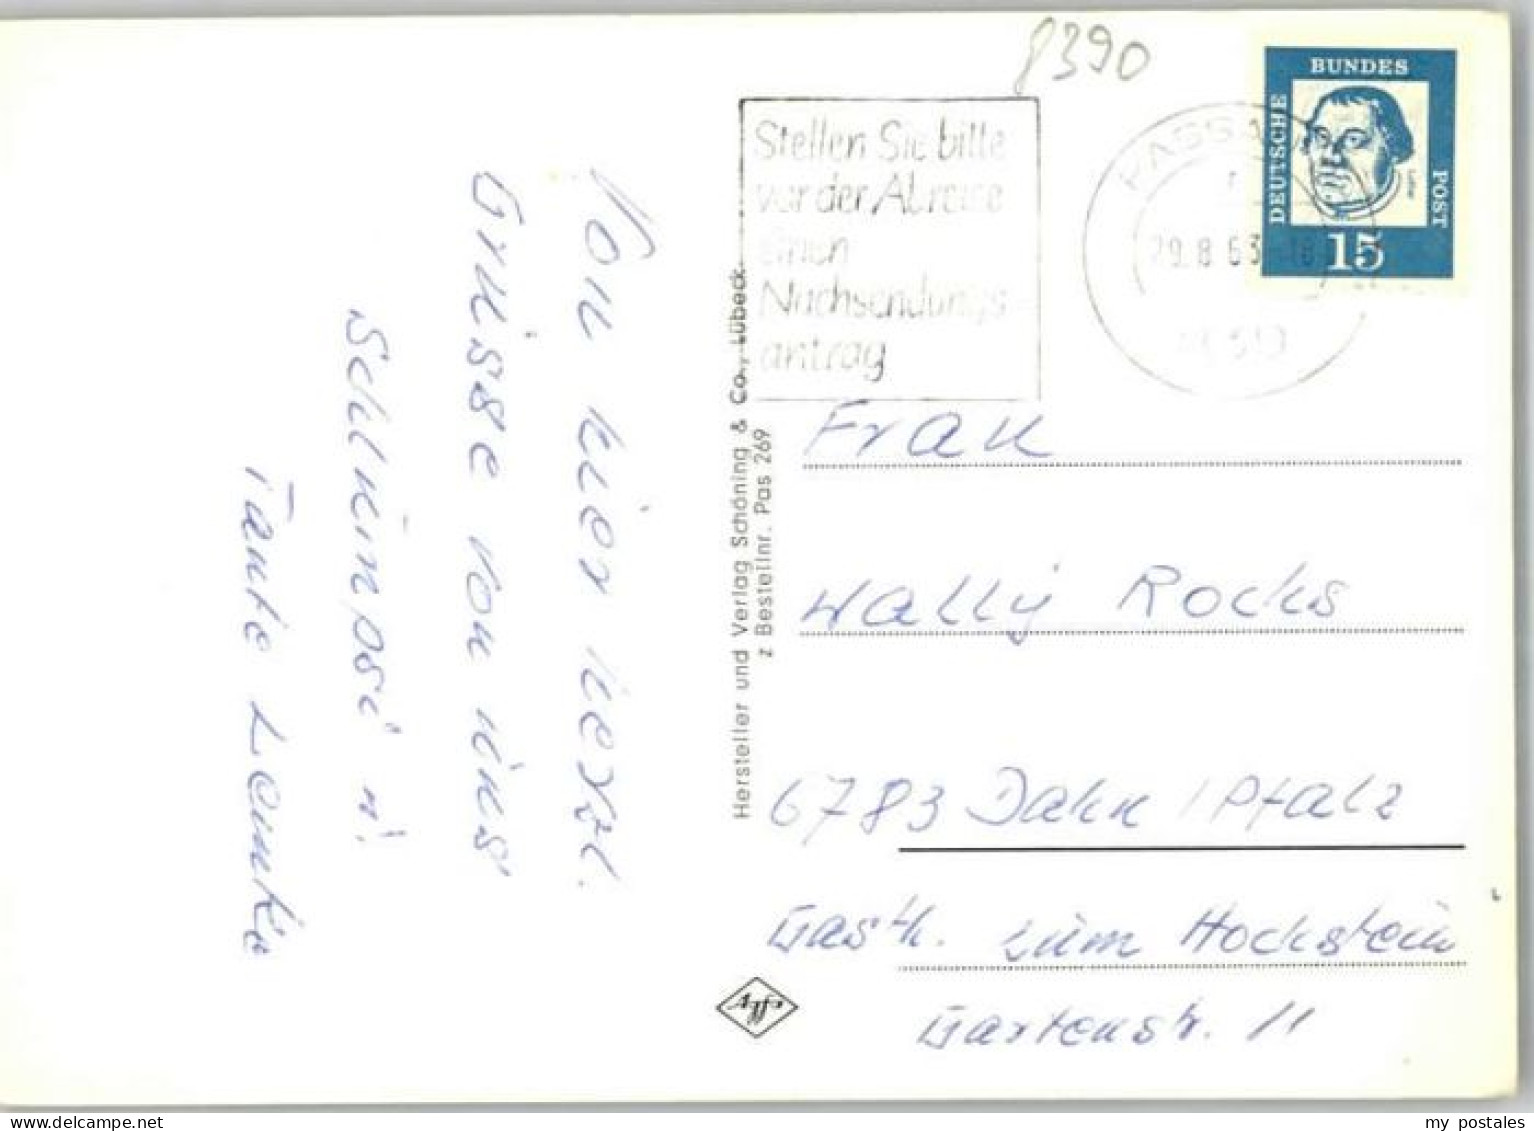 8390
BUNDES
DEUTSCHE
POST
15
PASSAU
29.8.63
Stellen Sie bitte
vor der Abreise
einen
Nachsendungs
antrag
Von hier herzl.
Grüsse von uns
Tante
Hersteller und Verlag Schöning & Co., Lübeck
z Bestellnr. Pas 269
Frau
Wally Rocks
6783 Dahn / Pfalz
Gasth. zum Hochstein
Gartenstr. 11
my postales